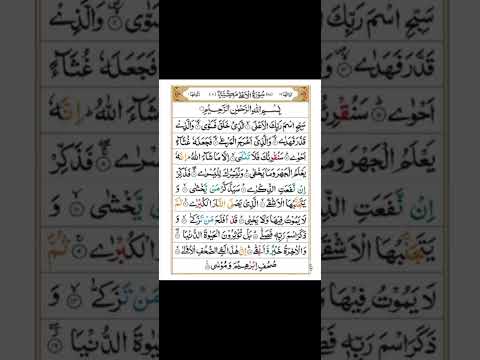 سُوْرَةُ الْاَعْلٰى مَكِّيَّةٌ
بِسْمِ اللّٰهِ الرَّحْمٰنِ الرَّحِيْمِ
سَبِّحِ اسْمَ رَبِّكَ الْاَعْلَى ۙ الَّذِیْ خَلَقَ فَسَوّٰی ۙ وَالَّذِیْ
قَدَّرَ فَهَدٰی ۙ وَالَّذِیْۤ اَخْرَجَ الْمَرْعٰی ۙ فَجَعَلَهٗ غُثَآءً
اَحْوٰی ؕ سَنُقْرِئُكَ فَلَا تَنْسٰۤی ۙ اِلَّا مَا شَآءَ اللّٰهُ ؕ اِنَّهٗ
یَعْلَمُ الْجَهْرَ وَمَا یَخْفٰی ؕ وَنُیَسِّرُكَ لِلْیُسْرٰی ۚ فَذَكِّرْ
اِنْ نَّفَعَتِ الذِّكْرٰی ؕ سَیَذَّكَّرُ مَنْ یَّخْشٰی ۙ وَ
یَتَجَنَّبُهَا الْاَشْقَی ۙ الَّذِیْ یَصْلَی النَّارَ الْكُبْرٰی ۚ ثُمَّ
لَا یَمُوْتُ فِیْهَا وَلَا یَحْیٰی ؕ قَدْ اَفْلَحَ مَنْ تَزَكّٰی ۙ وَ
ذَكَرَ اسْمَ رَبِّهٖ فَصَلّٰی ؕ بَلْ تُؤْثِرُوْنَ الْحَیٰوةَ الدُّنْیَا
وَالْاٰخِرَةُ خَیْرٌ وَّاَبْقٰی ؕ اِنَّ هٰذَا لَفِی الصُّحُفِ الْاُوْلٰی
صُحُفِ اِبْرٰهِیْمَ وَمُوْسٰی